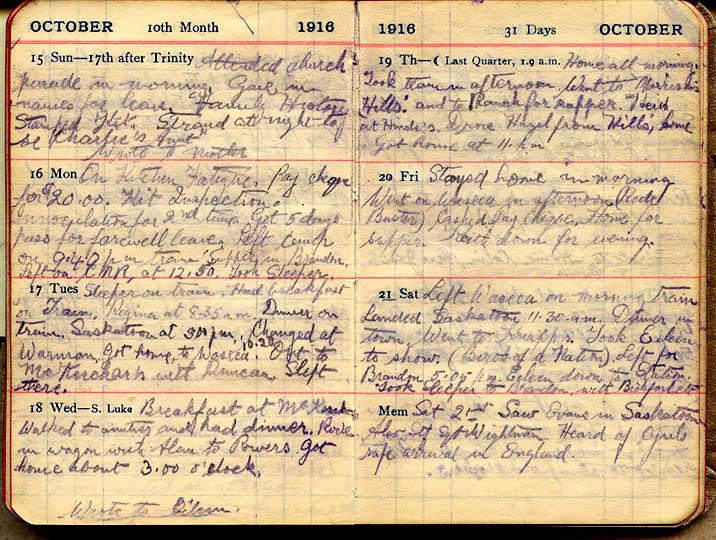 OCTOBER 10th Month 1916
15 Sun—17th after Trinity Attended church
parade in morning. Gave in
names for leave. Family History
Stamped Kit. Strand at night to
se Charlie's Aunt"
Wrote to Mother
16 Mon On Kitchen Fatigue. Pay cheque
for $20.00. Kit Inspection.
innoculation for 2nd time. Got 5 days
pass for farewell leave. Left camp
on p.m train supper in Brandon.
Left on C.N.R. at 12.50. Took Sleeper.
17 Tues Sleeper on train. Had breakfast
on Train. Regina at 8.35 a.m. Dinner on
train. Saskatoon at p.m, Changed at
Warman, Got home, to Waseca. 10.20 Out to
McKerchars with Duncan. Slept
there.
18 Wed—S. Luke Breakfast at
Walked to aunties and had dinner. Rode
in wagon with Alan to Powers. Got
home about 3.00 o'clock.
Wrote to Eileen.
1916 31 Days OCTOBER
19 Th—☾ Last Quarter, 1.9 a.m. Home all morning.
Took team in afternoon. Went to
Hills. and to Ranch for supper.
at Hinde's. Drove Hazel from Hills, home
Got home at 11. p.m
20 Fri Stayed home in morning
Went on Waseca in afternoon (Rode
Buster) Cashed pay cheque. Home for
supper. down for evening.
21 Sat Left Waseca on morning train
Landed Saskatoon 11-30-am. Dinner in
town. Went to Knapp's. Took Eileen
to show. (Birth of a Nation). Left for
Brandon 5.05 p.m Eileen down to Station.
Took Sleeper to Brandon, with
Mem Sat 21st Saw Evans in Saskatoon
Also Sgt Wightman. Heard of Cyrils
safe arrival in England.